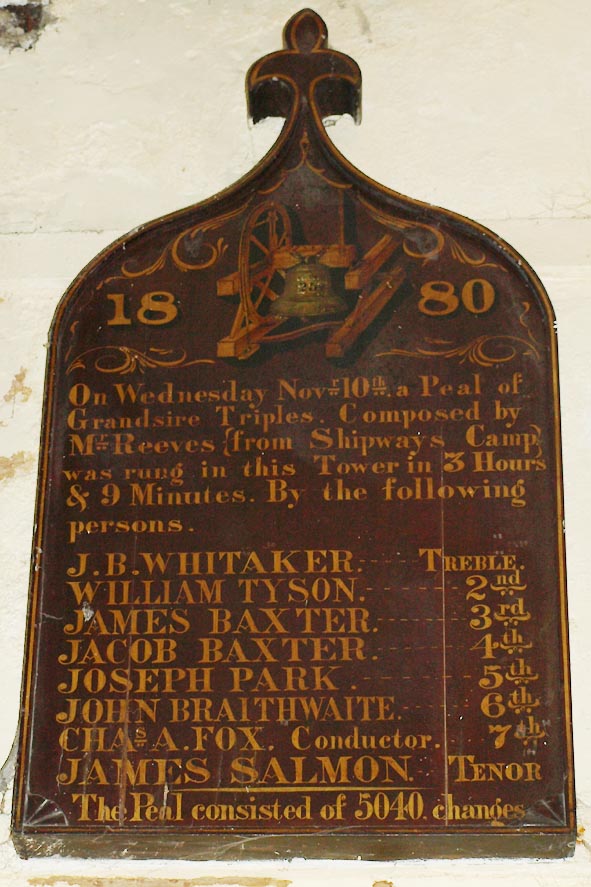 18 80
On Wednesday Novr 10th a Peal of
Grandsire Triples. Composed by
Mr Reeves {from Shipways Camp}
was rung in this Tower in 3 Hours
& 9 Minutes. By the following
persons.
J.B. WHITAKER. TREBLE.
WILLIAM TYSON. 2nd
JAMES BAXTER. 3rd
JACOB BAXTER. 4th
JOSEPH PARK. 5th
JOHN BRAITHWAITE. 6th
CHAs A. FOX. Conductor. 7th
JAMES SALMON. TENOR
The Peal consisted of 5040. changes